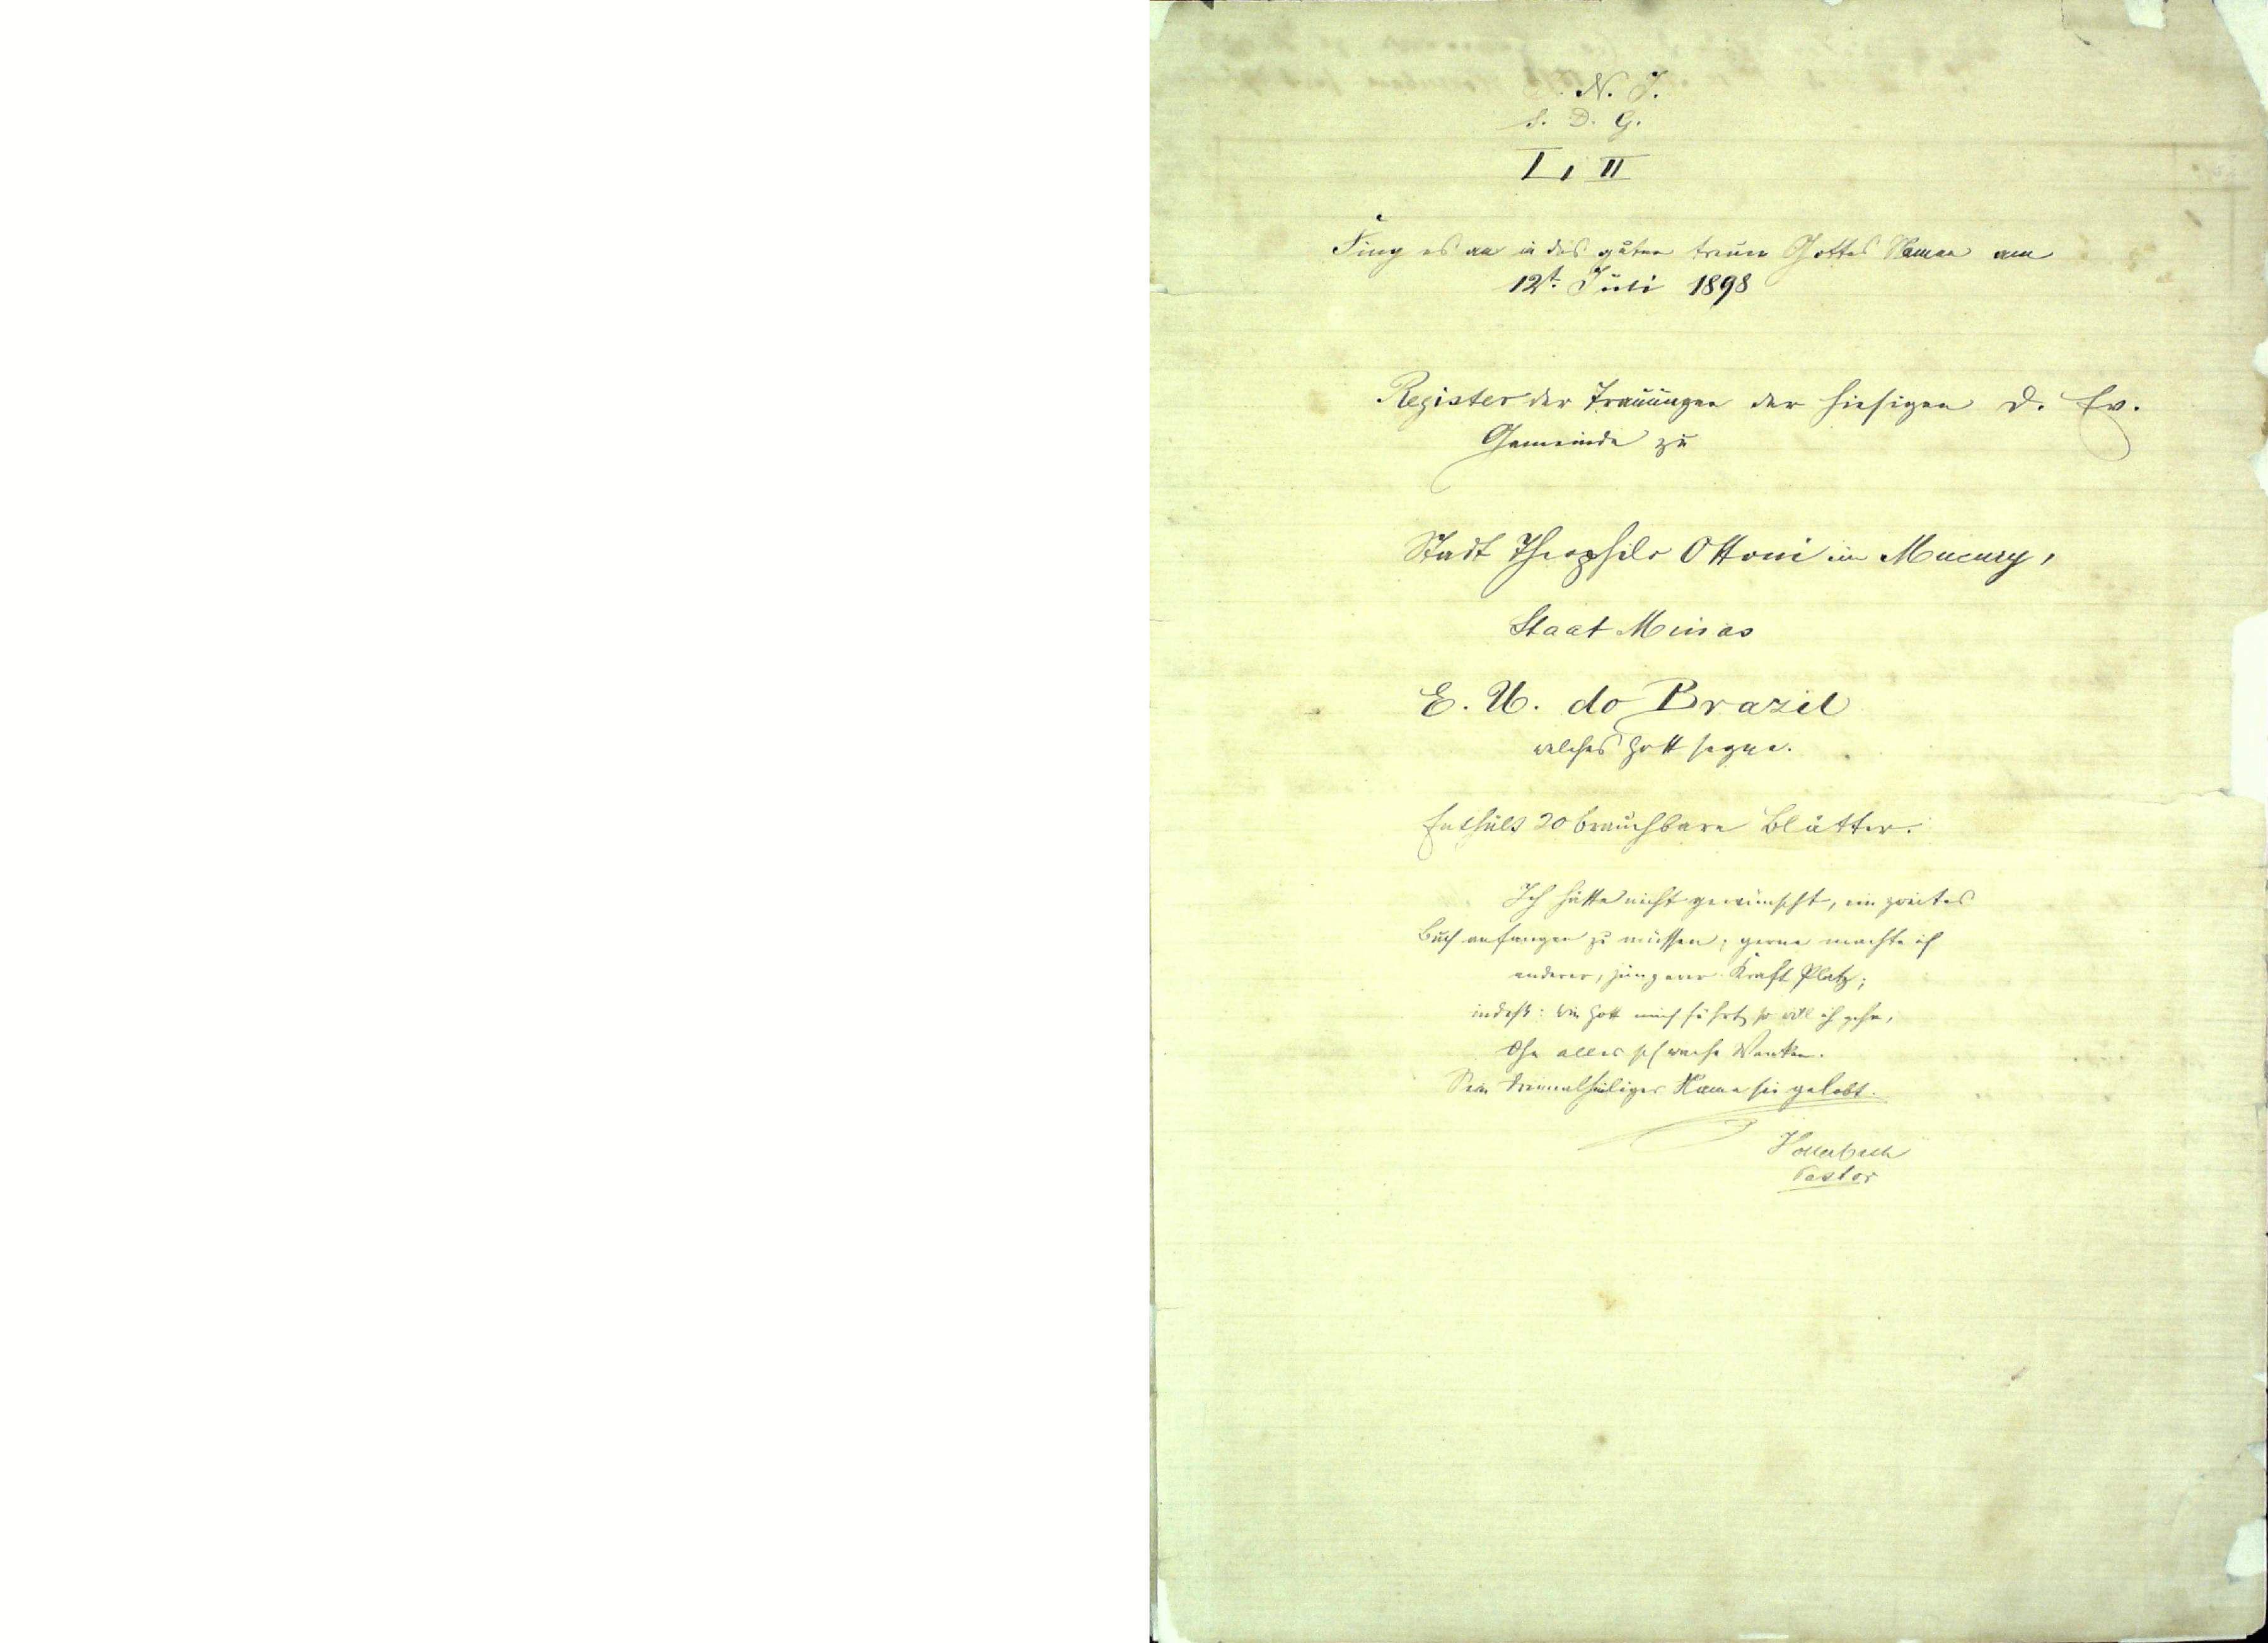 N. J.
S. D. G.
L. II
Fing es an in des guten treuen Gottes Namen am
12t. Juli 1898
Register der Trauungen der hiesigen D. Ev.
Gemeinde zu
Stadt Theophilo Ottoni im Mucury,
Staat Minas
E. U. do Brazil
welches Gott segne.
Enthält 20 brauchbare Blätter.
Ich hätte nicht gewünscht, ein zweites
Buch anfangen zu müssen; gerne machte ich
anderer, jüngerer Kraft Platz;
indeß: Wie Gott mich führt, so will ich gehn,
Ohn alles schwache Wanken.
Sein dreimalheiliger Name sei gelobt.
Hollerbach
Pastor